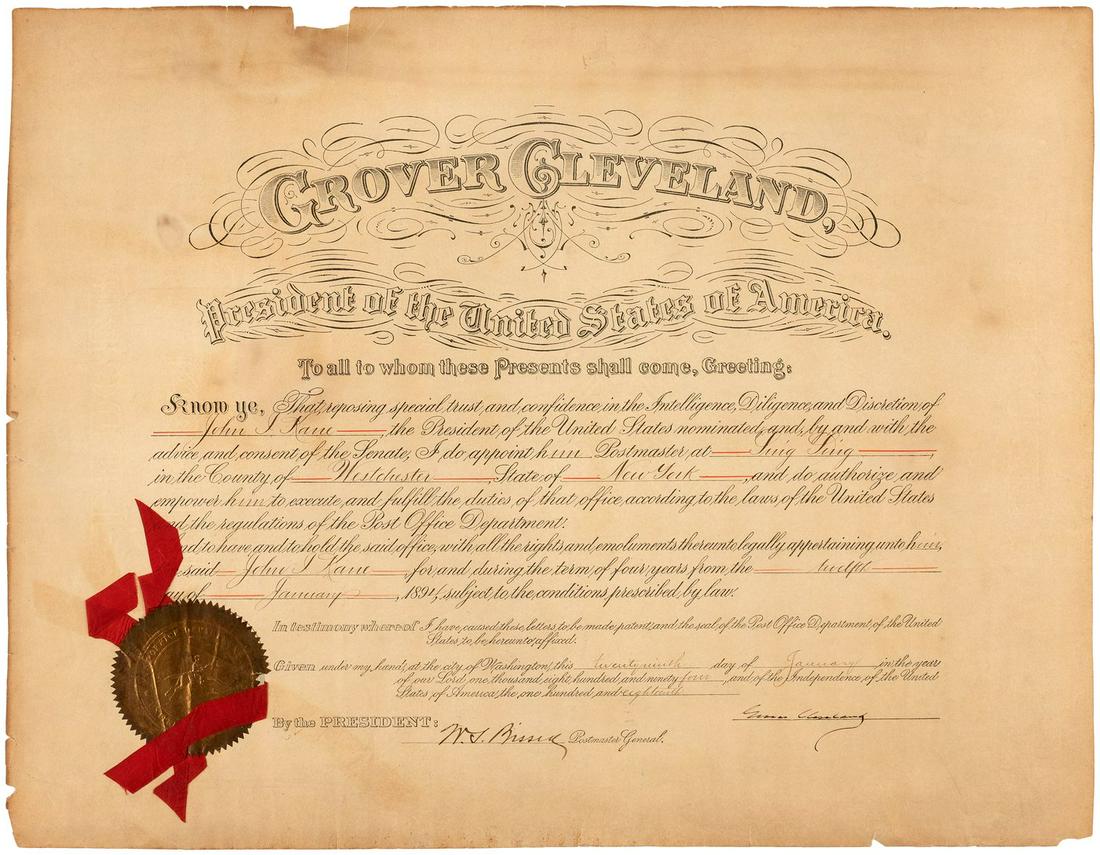 GROVER CLEVELAND,
President of the United States of America.
To all to whom these Presents shall come, Greeting:
Know ye, That, reposing special trust and confidence in the Intelligence, Diligence, and Discretion of
John I. Kane, the President of the United States nominated, and, by and with the
advice and consent of the Senate, I do appoint him Postmaster at Sing Sing,
in the County of Westchester, State of New York, and do authorize and
empower him to execute and fulfill the duties of that office, according to the laws of the United States
and the regulations of the Post Office Department.
And to have and to hold the said office, with all the rights and emoluments thereunto legally appertaining unto him,
said John I Kane, for and during the term of four years from the twelfth
day of January, 1894, subject to the conditions prescribed by law.
In testimony whereof I have caused these letters to be made patent, and the seal of the Post Office Department, of the United
States, to be hereunto affixed.
Given under my hand, at the city of Washington, this twentyninth day of January in the year
of our Lord one thousand eight hundred and ninety four, and of the Independence of the United
States of America, the one hundred and eighteenth
Grover Cleveland
By the PRESIDENT:
W. S. Bissell Postmaster General.